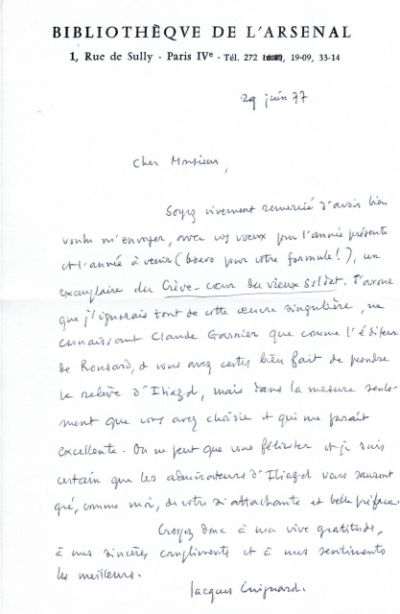 BIBLIOTHÈQVE DE L'ARSENAL
1, Rue de Sully · Paris IVe · Tél. 272 19-09, 33-14
29 juin 77
Cher Monsieur,
Soyez vivement remercié d'avoir bien
voulu m'envoyer, avec vos vœux pour l'année présente
et l'année à venir (bravo pour votre formule!), un
exemplaire du Crève-cœur du vieux soldat. J'avoue
que j'ignorais tout de cette œuvre singulière, ne
connaissant Claude Garnier que comme l'éditeur
de Ronsard, et vous avez certes bien fait de prendre
la relève d'Iliazd, mais dans la mesure seule-
ment que vous avez choisie et qui me paraît
excellente. On ne peut que vous féliciter et je suis
certain que les admirateurs d'Iliazd vous sauront
gré, comme moi, de votre si attachante et belle préface.
Croyez donc à ma vive gratitude,
à mes sincères compliments et à mes sentiments
les meilleurs.
Jacques Guignard.